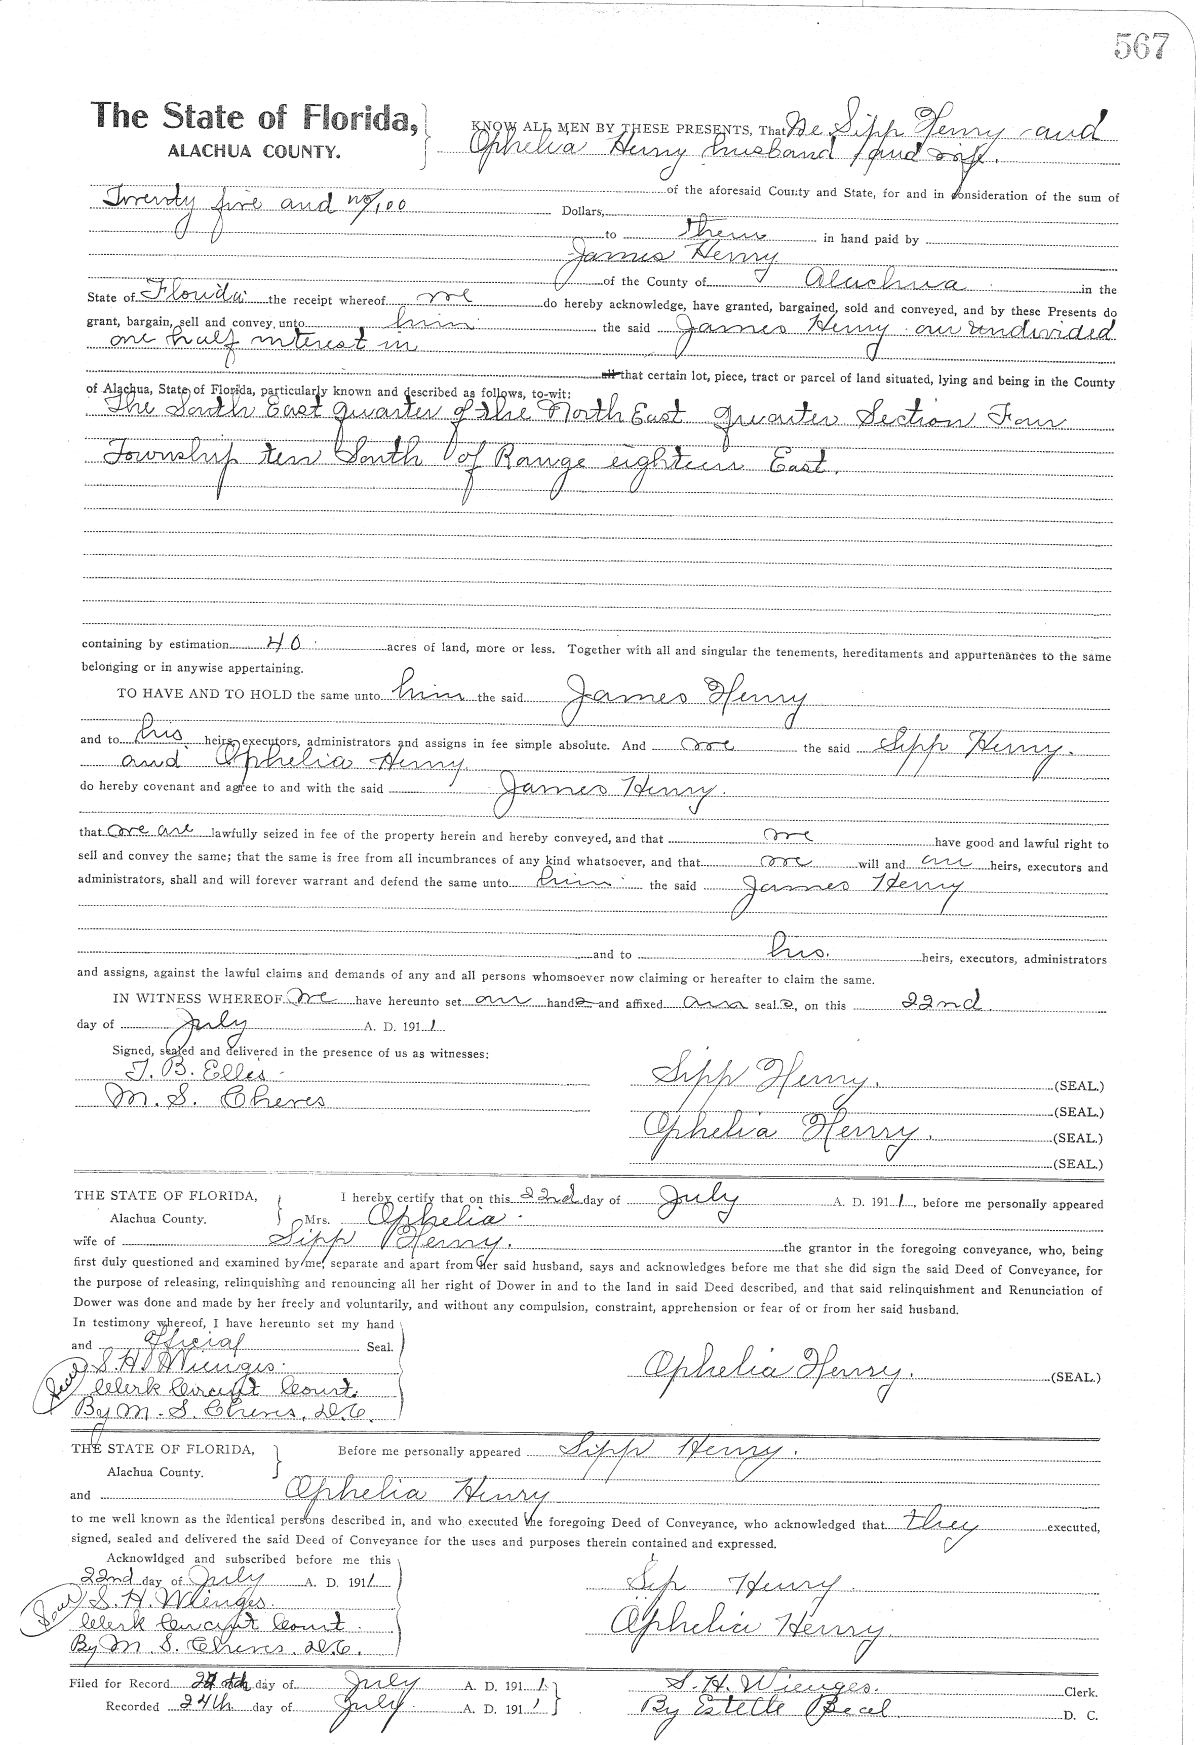 567
The State of Florida,
ALACHUA COUNTY.
KNOW ALL MEN BY THESE PRESENTS, That We Sipp Henry and
Ophelia Henry husband and wife.
of the aforesaid County and State, for and in consideration of the sum of
Twenty five and no/100 Dollars,
to them in hand paid by
James Henry
of the County of Alachua in the
State of Florida the receipt whereof we do hereby acknowledge, have granted, bargained, sold and conveyed, and by these Presents do
grant, bargain, sell and convey unto him the said James Henry our undivided
one half interest in
all that certain lot, piece, tract or parcel of land situated, lying and being in the County
of Alachua, State of Florida, particularly known and described as follows, to-wit:
The South East quarter of the North East quarter Section Four
Township ten South of Range eighteen East.
containing by estimation 40 acres of land, more or less. Together with all and singular the tenements, hereditaments and appurtenances to the same
belonging or in anywise appertaining.
TO HAVE AND TO HOLD the same unto him the said James Henry
and to his heirs, executors, administrators and assigns in fee simple absolute. And we the said Sipp Henry.
and Ophelia Henry
do hereby covenant and agree to and with the said James Henry.
that we are lawfully seized in fee of the property herein and hereby conveyed, and that we have good and lawful right to
sell and convey the same; that the same is free from all incumbrances of any kind whatsoever, and that we will and our heirs, executors and
administrators, shall and will forever warrant and defend the same unto him the said James Henry
and to his. heirs, executors, administrators
and assigns, against the lawful claims and demands of any and all persons whomsoever now claiming or hereafter to claim the same.
IN WITNESS WHEREOF We have hereunto set our hands and affixed our seals, on this 22nd
day of July A. D. 1911.
Signed, sealed and delivered in the presence of us as witnesses:
T. B. Ellis
M. S. Cheves
Sipp Henry. (SEAL.)
(SEAL.)
Ophelia Henry. (SEAL.)
(SEAL.)
THE STATE OF FLORIDA,
Alachua County.
I hereby certify that on this 22nd day of July A. D. 1911, before me personally appeared
Mrs. Ophelia
wife of Sipp Henry. the grantor in the foregoing conveyance, who, being
first duly questioned and examined by me, separate and apart from her said husband, says and acknowledges before me that she did sign the said Deed of Conveyance, for
the purpose of releasing, relinquishing and renouncing all her right of Dower in and to the land in said Deed described, and that said relinquishment and Renunciation of
Dower was done and made by her freely and voluntarily, and without any compulsion, constraint, apprehension or fear of or from her said husband.
In testimony whereof, I have hereunto set my hand
and official Seal.
Seal S. H. Wienges.
Clerk Circuit Court.
By M. S. Cheves, D.C.
Ophelia Henry. (SEAL.)
THE STATE OF FLORIDA,
Alachua County.
Before me personally appeared Sipp Henry.
and Ophelia Henry
to me well known as the identical persons described in, and who executed the foregoing Deed of Conveyance, who acknowledged that they executed,
signed, sealed and delivered the said Deed of Conveyance for the uses and purposes therein contained and expressed.
Acknowldged and subscribed before me this
22nd day of July A. D. 1911
Seal S. H. Wienges.
Clerk Circuit Court.
By M. S. Cheves. D.C.
Sip Henry.
Ophelia Henry.
Filed for Record 24th day of July A. D. 1911
Recorded 24th day of July. A. D. 1911
S. H. Wienges. Clerk.
By Estelle Beal D. C.